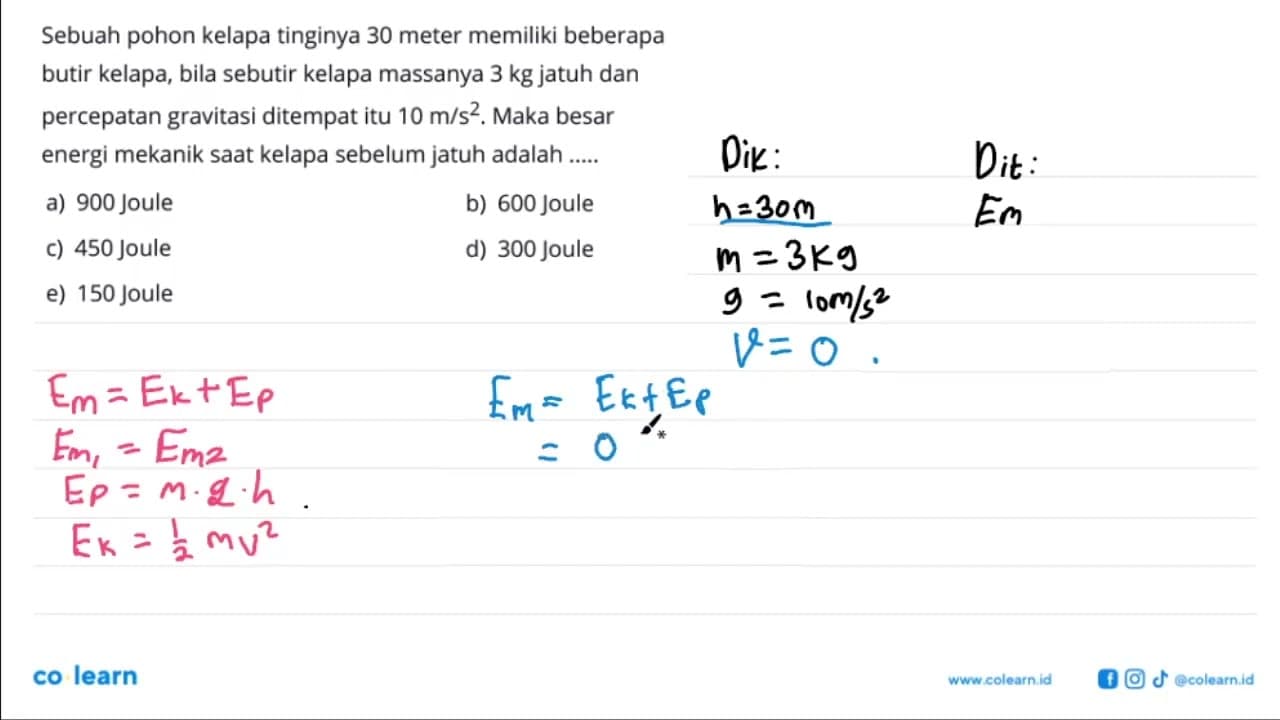 Sebuah pohon kelapa tingginya 30 meter memiliki beberapa
butir kelapa, bila sebutir kelapa massanya 3 kg jatuh dan
percepatan gravitasi ditempat itu 10 m/s². Maka besar
energi mekanik saat kelapa sebelum jatuh adalah .....
a) 900 Joule
b) 600 Joule
c) 450 Joule
d) 300 Joule
e) 150 Joule
Dik:
h = 30m
m = 3kg
g = 10m/s²
V = 0 .
Dit:
Em
Em = Ek + Ep
Em₁ = Em2
Ep = m . g . h .
Ek = 1/2 mv²
Em = Ek + Ep
= 0
co learn
www.colearn.id
@colearn.id